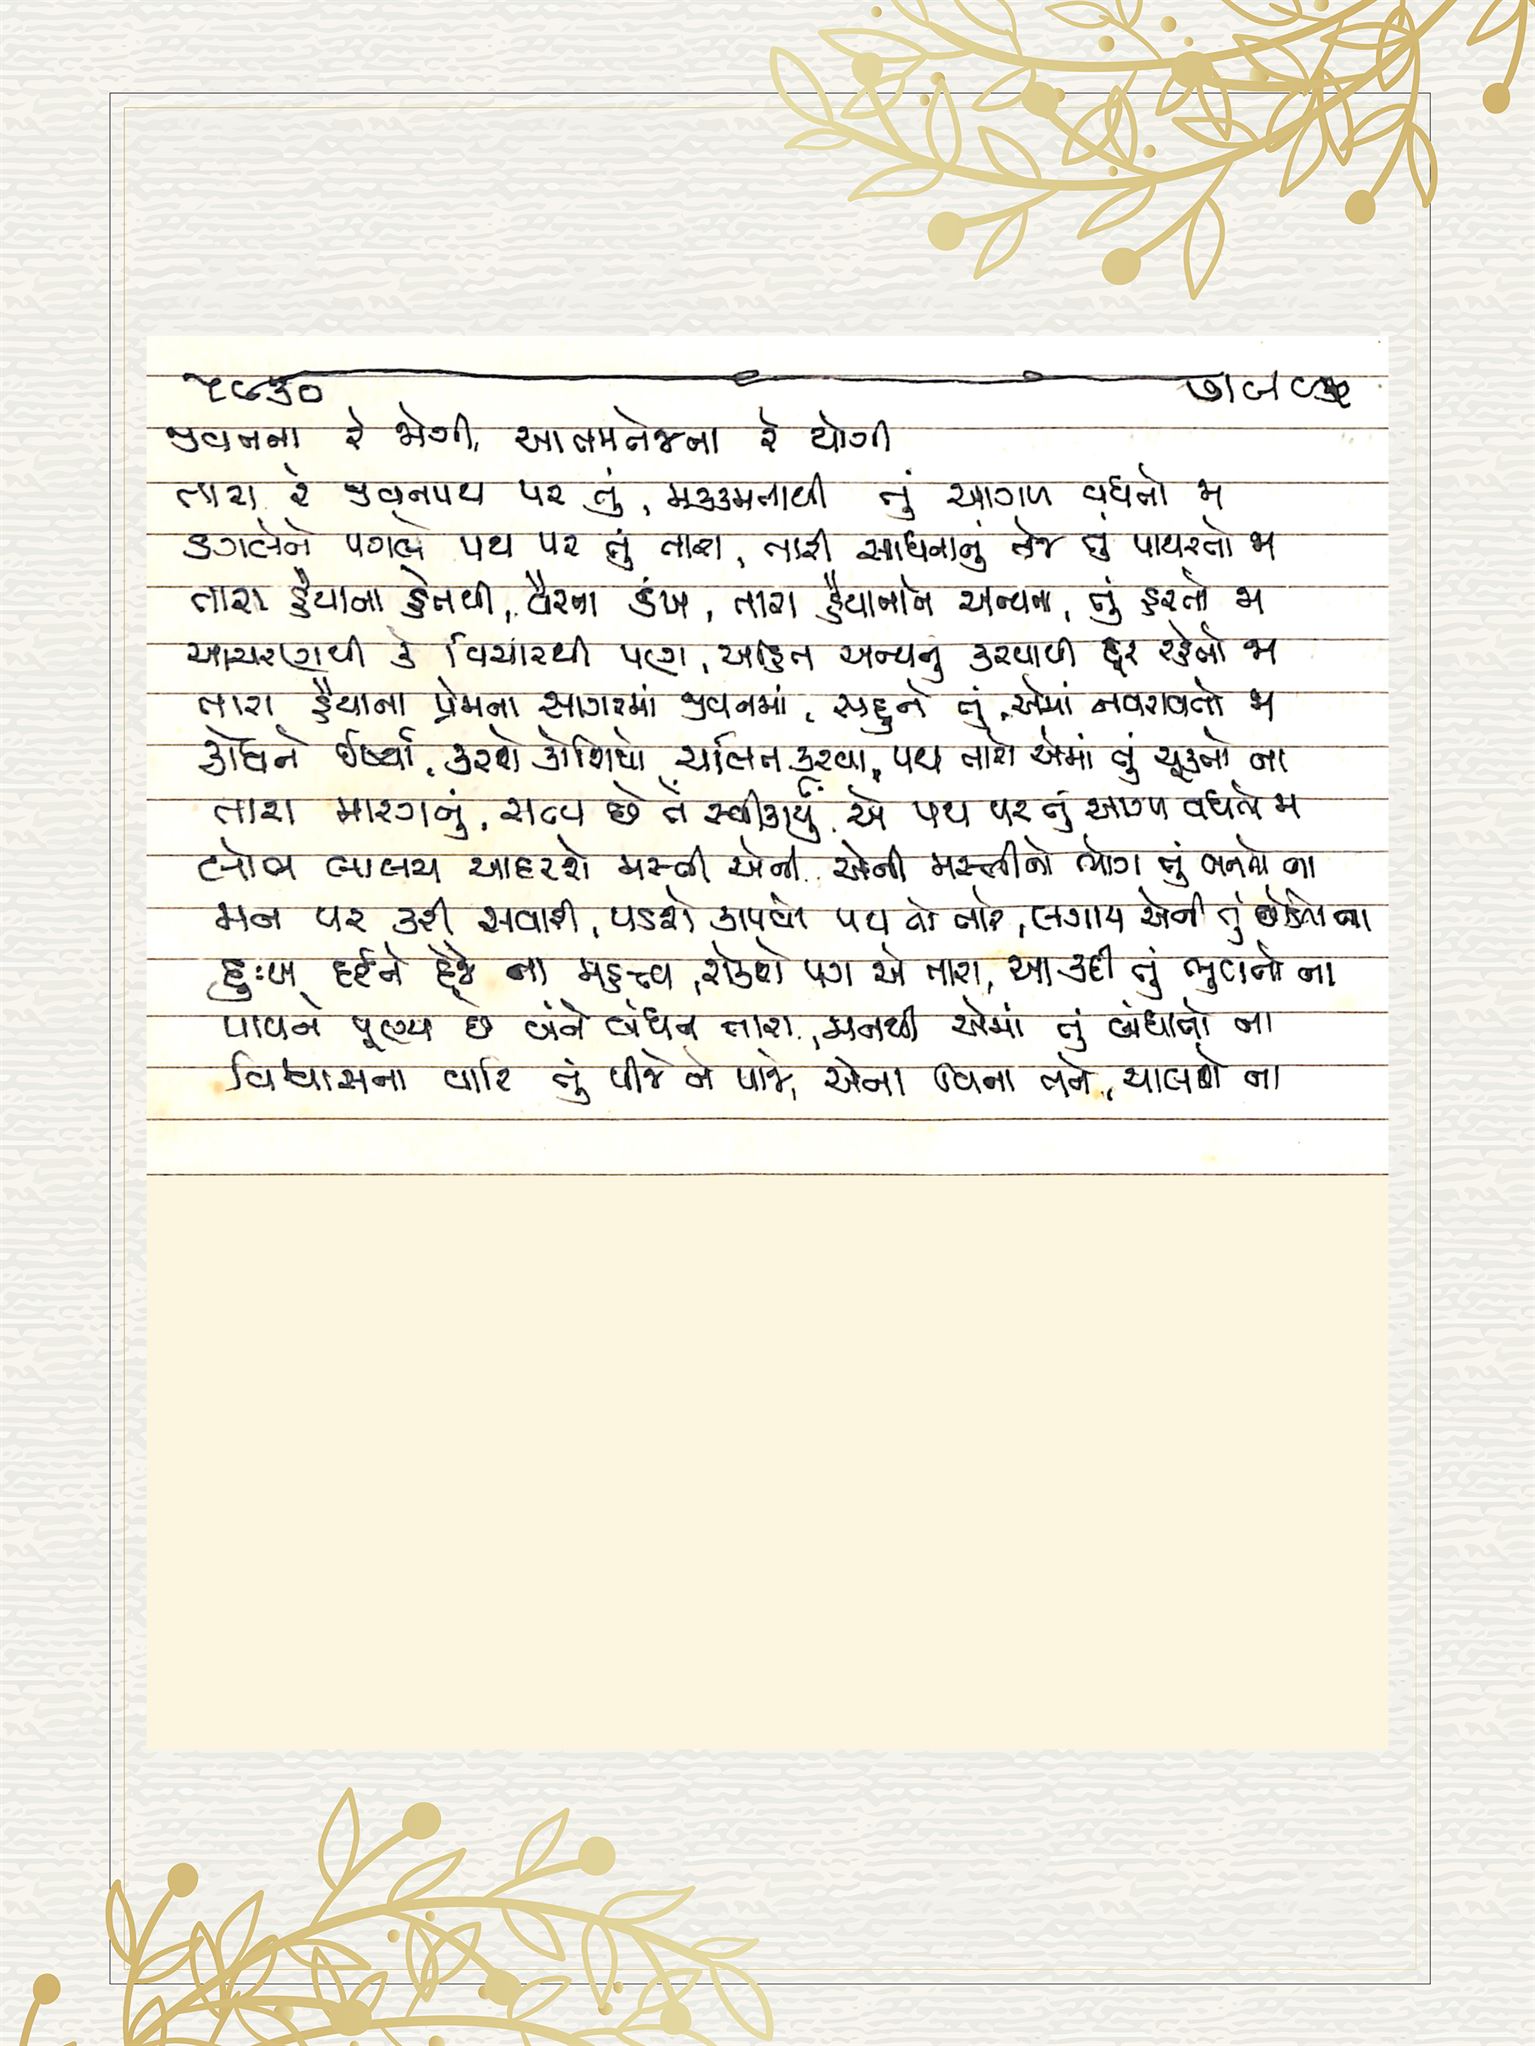 ૫૯૩૦
જીવનના રે ભોગી, આતમતેજના રે યોગી
તારા રે જીવનપથ પર તું, મક્કમતાથી તું આગળ વધતો જા
ડગલેને પગલે પથ પર તું તારા, તારી સાધનાનું તેજ તું પાથરતો જા
તારા હૈયાના હેતથી, વૈરના ડંખ, તારા હૈયાનાને અન્યના, તું હરતો જા
આચરણથી કે વિચારથી પણ, અહિત અન્યનું કરવાથી દૂર રહેતો જા
તારા હૈયાના પ્રેમના સાગરમાં જીવનમાં, સહુને તું, એમાં નવરાવતો જા
ક્રોધને ઈર્ષ્યા, કરશે કોશિશો ચલિત કરવા, પથ તારો એમાં તું ચૂકતો ના
તારા મારગનું, સત્ય છે તેં સ્વીકાર્યું, એ પથ પર તું આગળ વધતો જા
લોભ લાલચ આદરશે મસ્તી એની, એની મસ્તીનો ભોગ તું બનતો ના
મન પર કરી સવારી, પડશે કાપવો પથ તો તારે, લગામ એની તું છોડતો ના
દુઃખ દર્દને દેજે ના મહત્ત્વ, રોકશે પગ એ તારા, આ કદી તું ભુલતો ના
પાપને પૂણ્ય છે બંને બંધન તારા, મનથી એમાં તું બંધાતો ના
વિશ્વાસના વારિ તું પીજે ને પાજે, એના વિના તને, ચાલશે ના